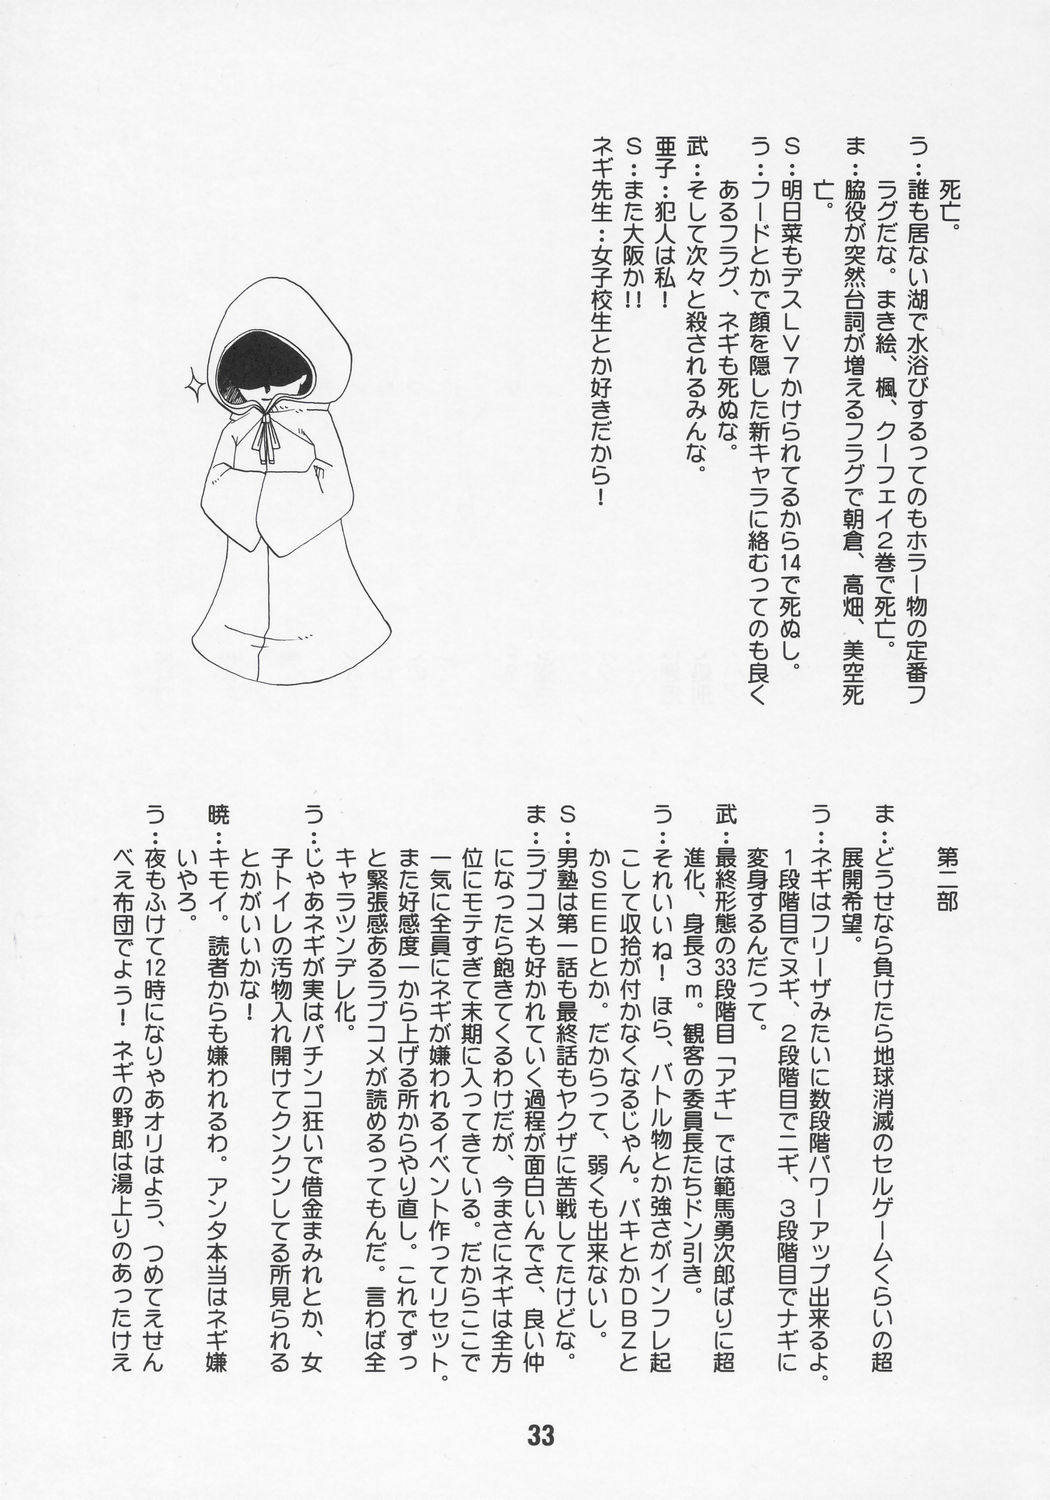 死亡。
う：誰も居ない湖で水浴びするってのもホラー物の定番フ
ラグだな。まき絵、楓、クーフェイ２巻で死亡。
ま：脇役が突然台詞が増えるフラグで朝倉、高畑、美空死
亡。
Ｓ：明日菜もデスＬＶ７かけられてるから14で死ぬし。
う：フードとかで顔を隠した新キャラに絡むってのも良く
あるフラグ、ネギも死ぬな。
武：そして次々と殺されるみんな。
亜子：犯人は私！
Ｓ：また大阪か!!
ネギ先生：女子校生とか好きだから！
第二部
ま：どうせなら負けたら地球消滅のセルゲームくらいの超
展開希望。
う：ネギはフリーザみたいに数段階パワーアップ出来るよ。
１段階目でヌギ、２段階目でニギ、３段階目でナギに
変身するんだって。
武：最終形態の33段階目「アギ」では範馬勇次郎ばりに超
進化、身長３ｍ。観客の委員長たちドン引き。
う：それいいね！ほら、バトル物とか強さがインフレ起
こして収拾が付かなくなるじゃん。バキとかＤＢＺと
かＳＥＥＤとか。だからって、弱くも出来ないし。
Ｓ：男塾は第一話も最終話もヤクザに苦戦してたけどな。
ま：ラブコメも好かれていく過程が面白いんでさ、良い仲
になったら飽きてくるわけだが、今まさにネギは全方
位にモテすぎて末期に入ってきている。だからここで
一気に全員にネギが嫌われるイベント作ってリセット。
また好感度一から上げる所からやり直し。これでずっ
と緊張感あるラブコメが読めるってもんだ。言わば全
キャラツンデレ化。
う：じゃあネギが実はパチンコ狂いで借金まみれとか、女
子トイレの汚物入れ開けてクンクンしてる所見られる
とかがいいかな！
暁：キモイ。読者からも嫌われるわ。アンタ本当はネギ嫌
いやろ。
う：夜もふけて12時になりゃあオリはよう、つめてえせん
べえ布団でよう！ネギの野郎は湯上りのあったけえ
33